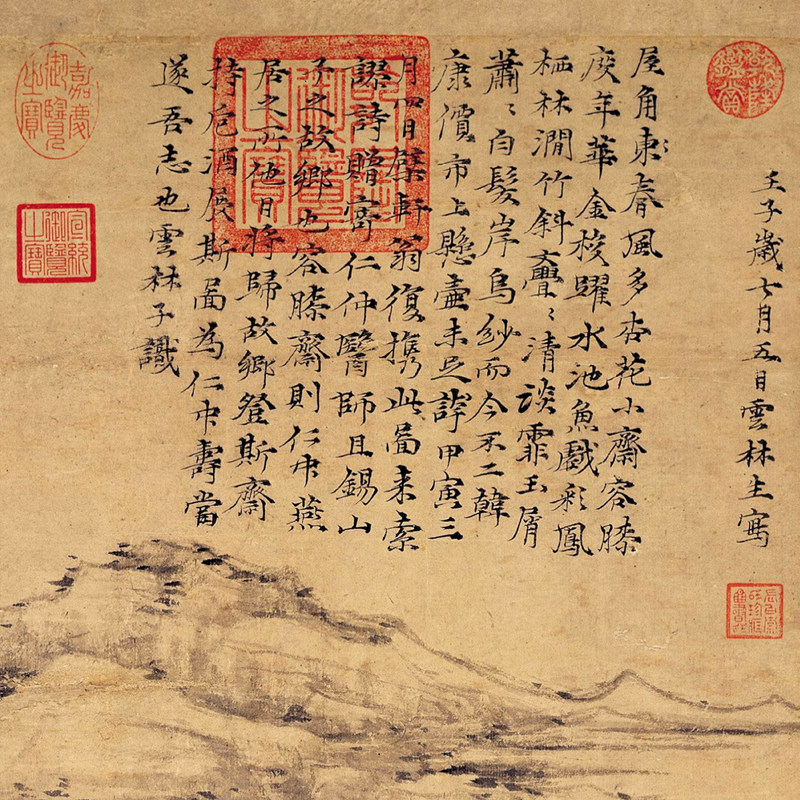 壬子歲七月五日雲林生寫
屋角東春風多杏花小齋容膝
度年華金梭躍水池魚戲彩鳳
栖林澗竹斜亹〻清談霏玉屑
蕭〻白髮岸烏紗而今不二韓
康價市上懸壺未足誇甲寅三
月四日檗軒翁復携此啚来索
謬詩贈寄仁仲醫師且錫山
予之故鄉也容膝齋則仁中燕
居之所他日將歸故鄉登斯齋
持卮酒展斯啚為仁中壽當
遂吾志也雲林子識
嘉慶御覽之寶
宣統御覽之寶